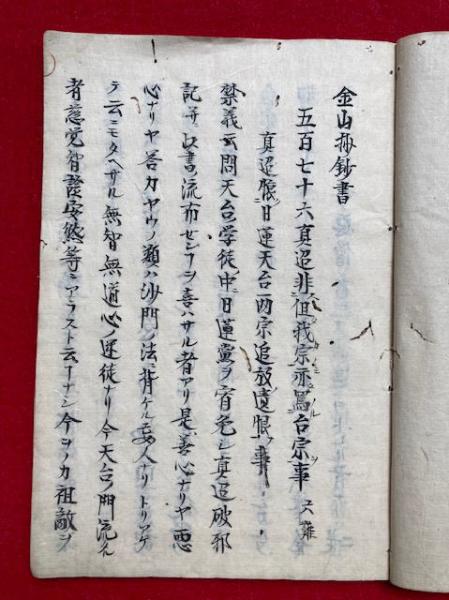 金山抄鈔書
五百七十六真迢非但我宗亦罵台宗事 六難
真迢恨日蓮天台両宗追放遺恨ノ事
禁義云問天台学徒中ニ日蓮党ヲ育色シ真迢破邪
記并此書流布センヿヲ喜ハサル者アリ是善心ナリヤ悪
心ナリヤ答カヤウノ類ハ沙門ノ法ニ背ケル妄人ナリトリツケ
テ云ニモタヘサル無智無道心ノ逆徒ナリ今天台ノ門流ハ
者慈覚智證安然等ニアラスト云ヿナシ今ソノカ祖敵ヲ